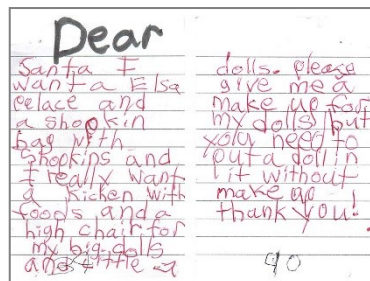 Dear
Santa I
want a Elsa
pelace and
a shopkin
bag with
Shopkins and
I really want
a kichen with
foods and a
high chair for
my big dolls
and little
dolls. please
give me a
make up for
my dolls but
you need to
put a doll in
it without
make up
thank you!